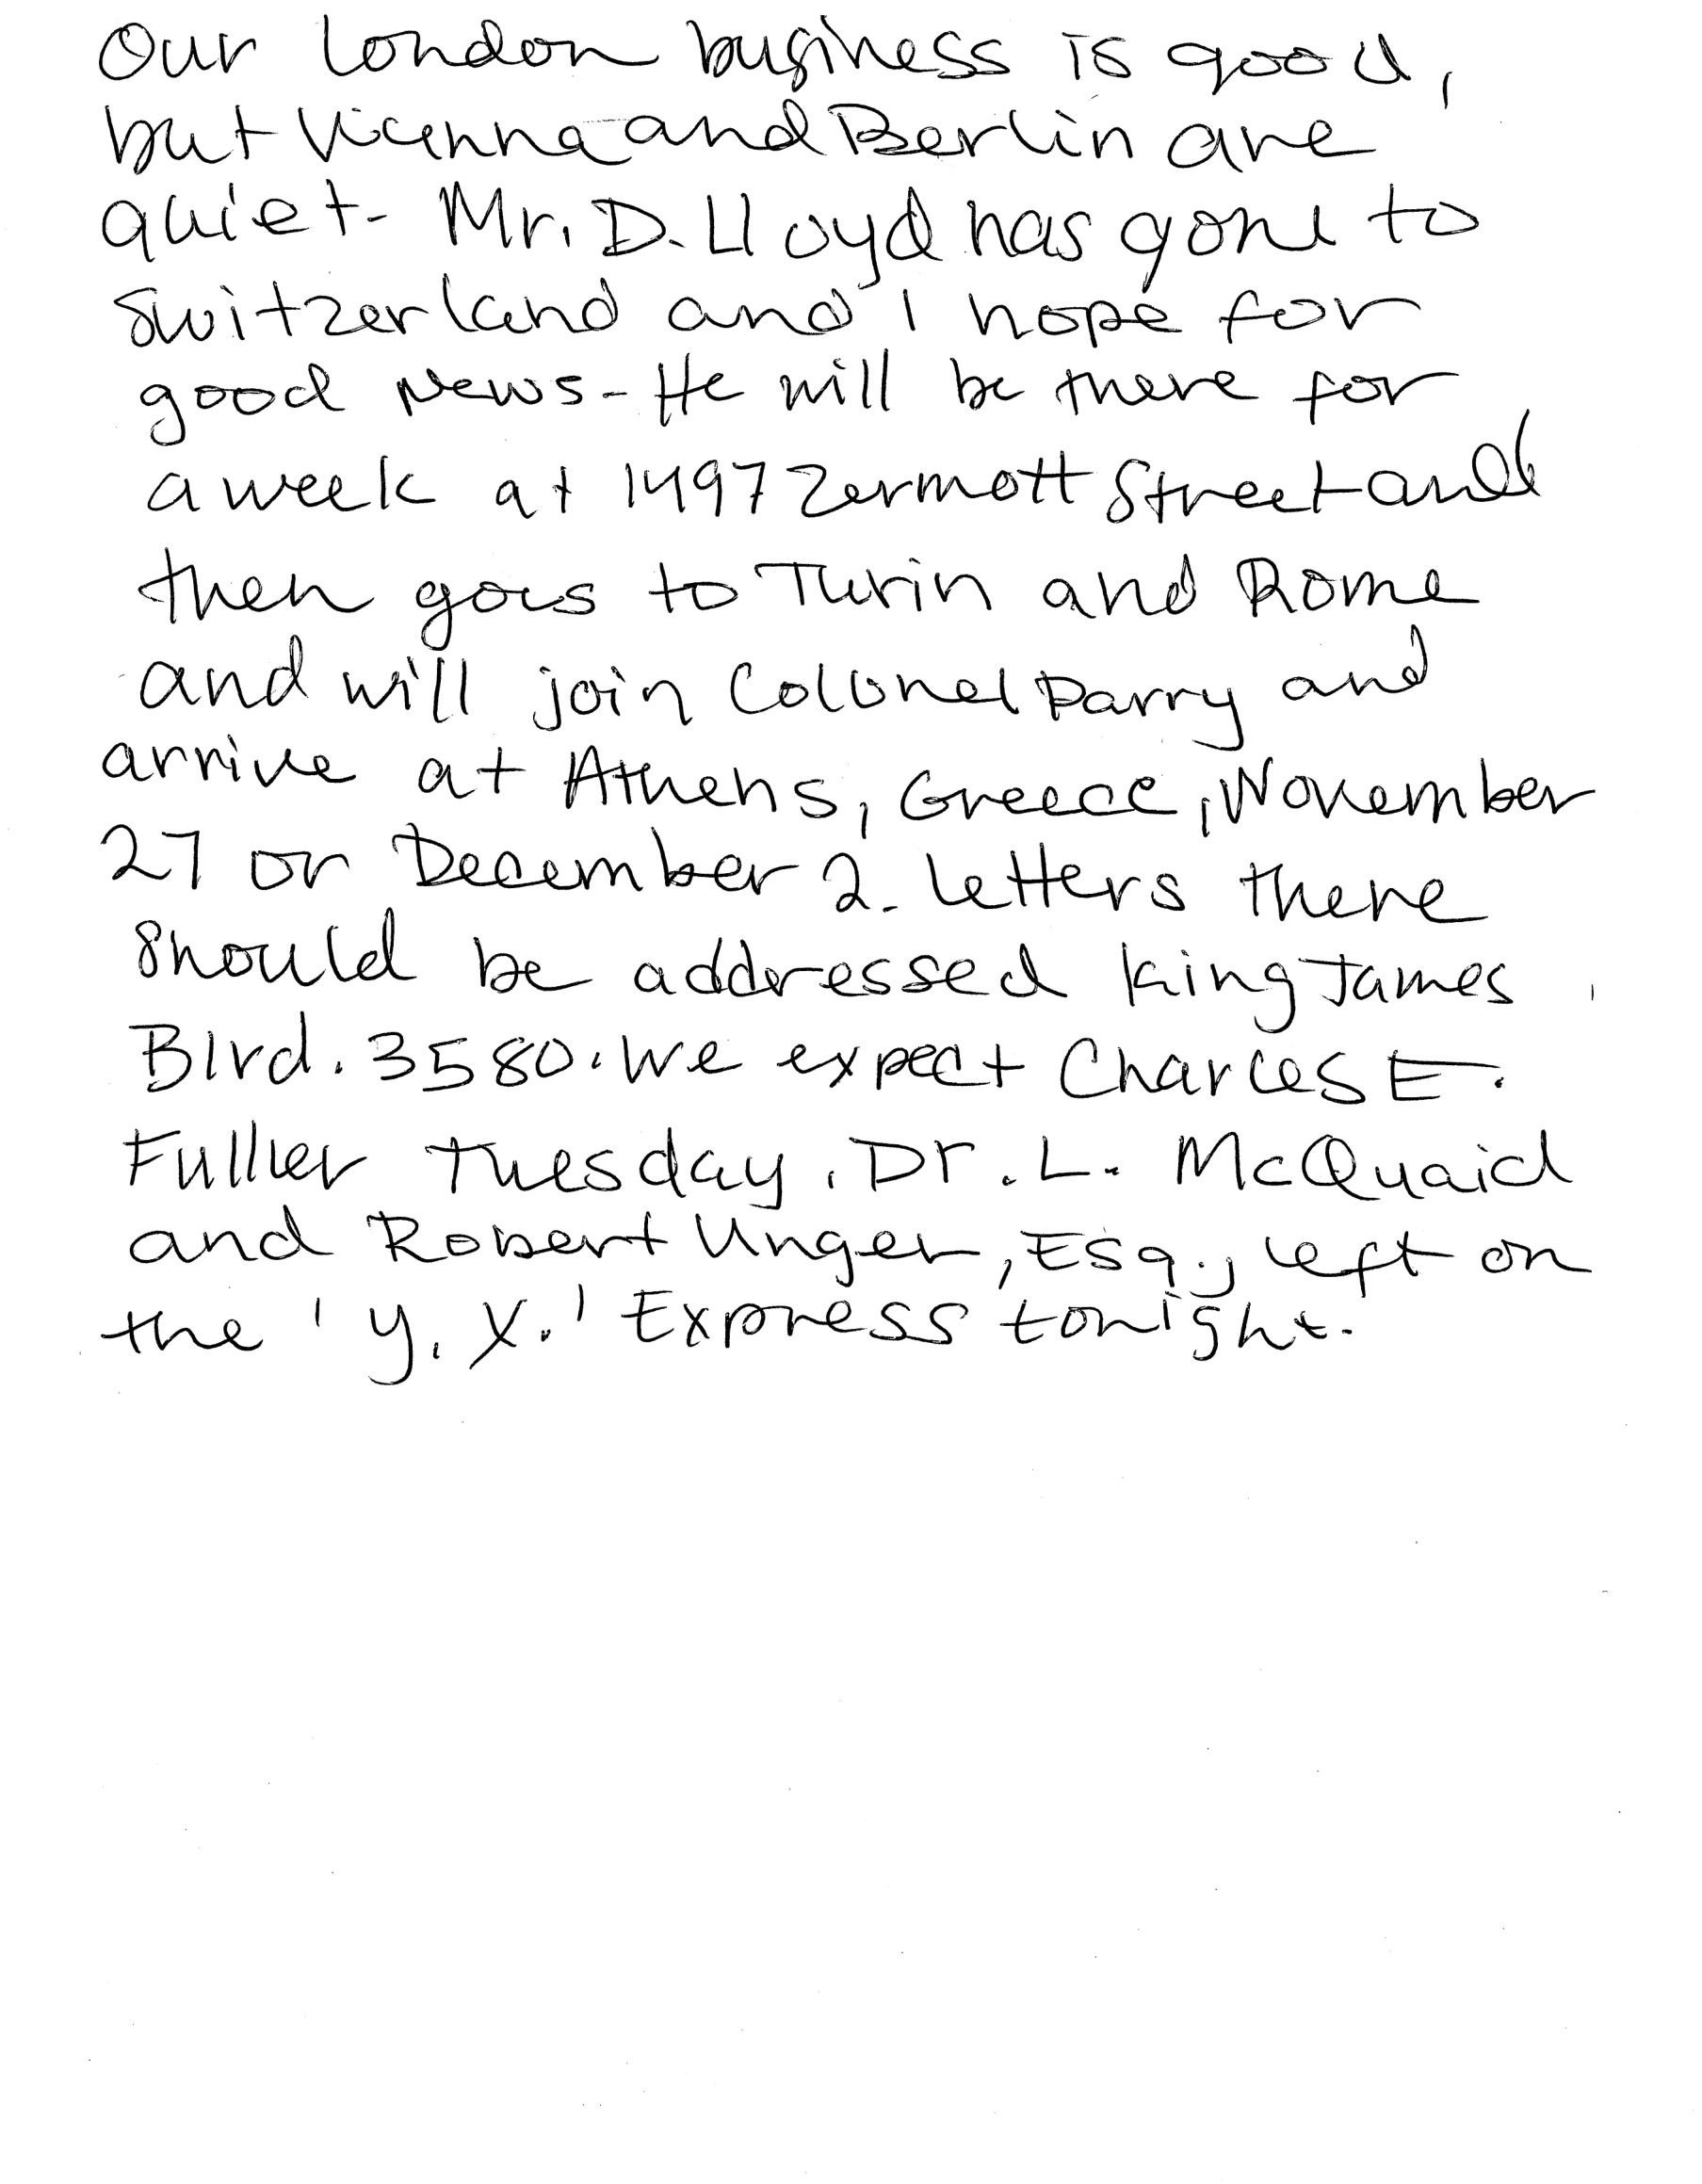 Our London business is good,
but Vienna and Berlin are
quiet - Mr. D. Lloyd has gone to
Switzerland and I hope for
good news - He will be there for
a week at 1497 Zermott Street and
then goes to Turin and Rome
and will join Colonel Parry and
arrive at Athens, Greece, November
27 or December 2. Letters there
should be addressed King James
Blvd. 3580. We expect Charles E.
Fuller Tuesday. Dr. L. McQuaid
and Robert Unger, Esq., left on
the 'Y. X.' Express tonight.